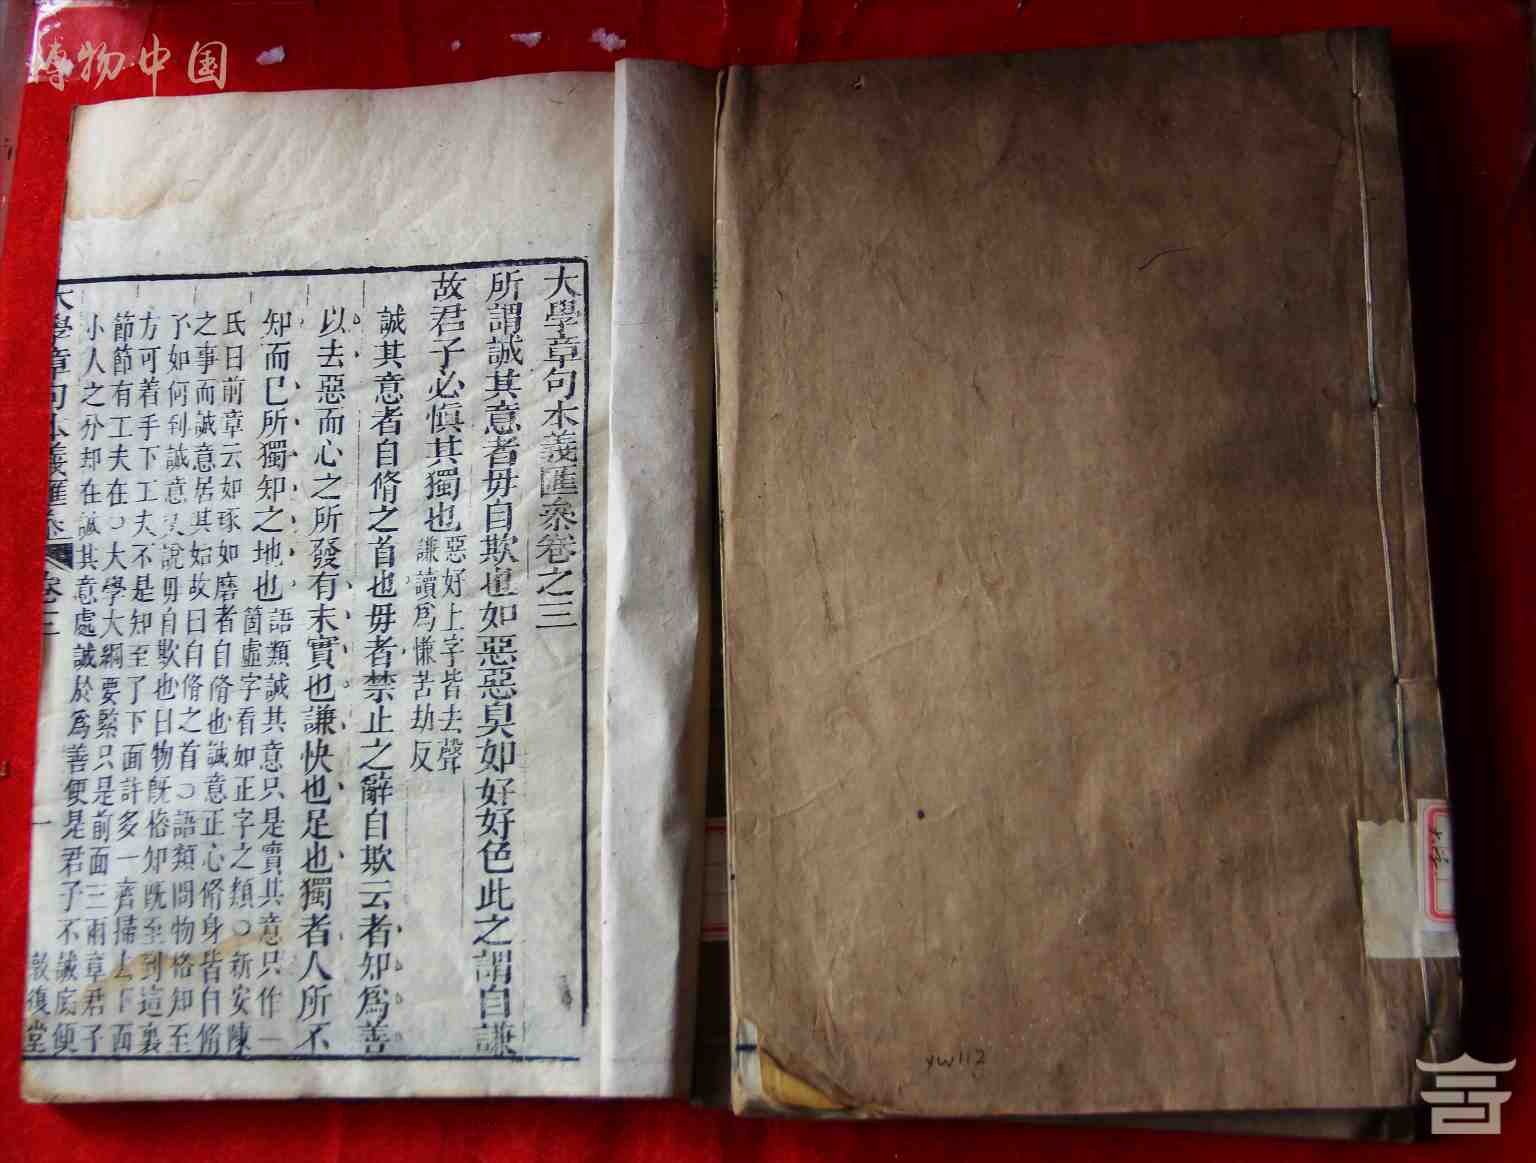 博物·中国
大學章句本義匯叅卷之三
所謂誠其意者毋自欺也如惡惡臭如好好色此之謂自謙
故君子必慎其獨也惡好上字皆去聲
謙讀爲慊苦劫反
誠其意者自脩之首也毋者禁止之辭自欺云者知爲善
以去惡而心之所發有未實也謙快也足也獨者人所不
知而已所獨知之地也語類誠其意只是實其意只作一
箇虛字看如正字之類○新安陳
氏曰前章云如琢如磨者自脩也誠意正心脩身皆自脩
之事而誠意居其始故曰自脩之首○語類問物格知至
了如何到誠意又說毋自欺也曰物既格知既至到這裏
方可着手下工夫不是知至了下面許多一齊掃去下面
節節有工夫在○大學大綱要緊只是前面三兩章君子
小人之分却在誠其意處誠於爲善便是君子不誠底便
大學章句本義匯叅
卷三
一
敦復堂
yw112